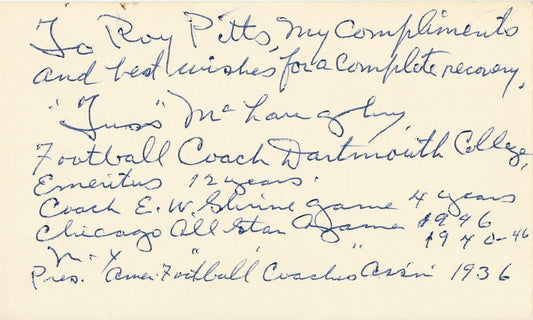 To Roy Pitts, My Compliments
and best wishes, for a complete recovery,
"Tuss" McLaughry
Football Coach Dartmouth College,
Emeritus 12 years.
Coach E. W. Shrine game 4 years
Chicago All Star game 1946
N. Y. " " " 1940-46
Pres. Amer. Football Coaches Assn 1936